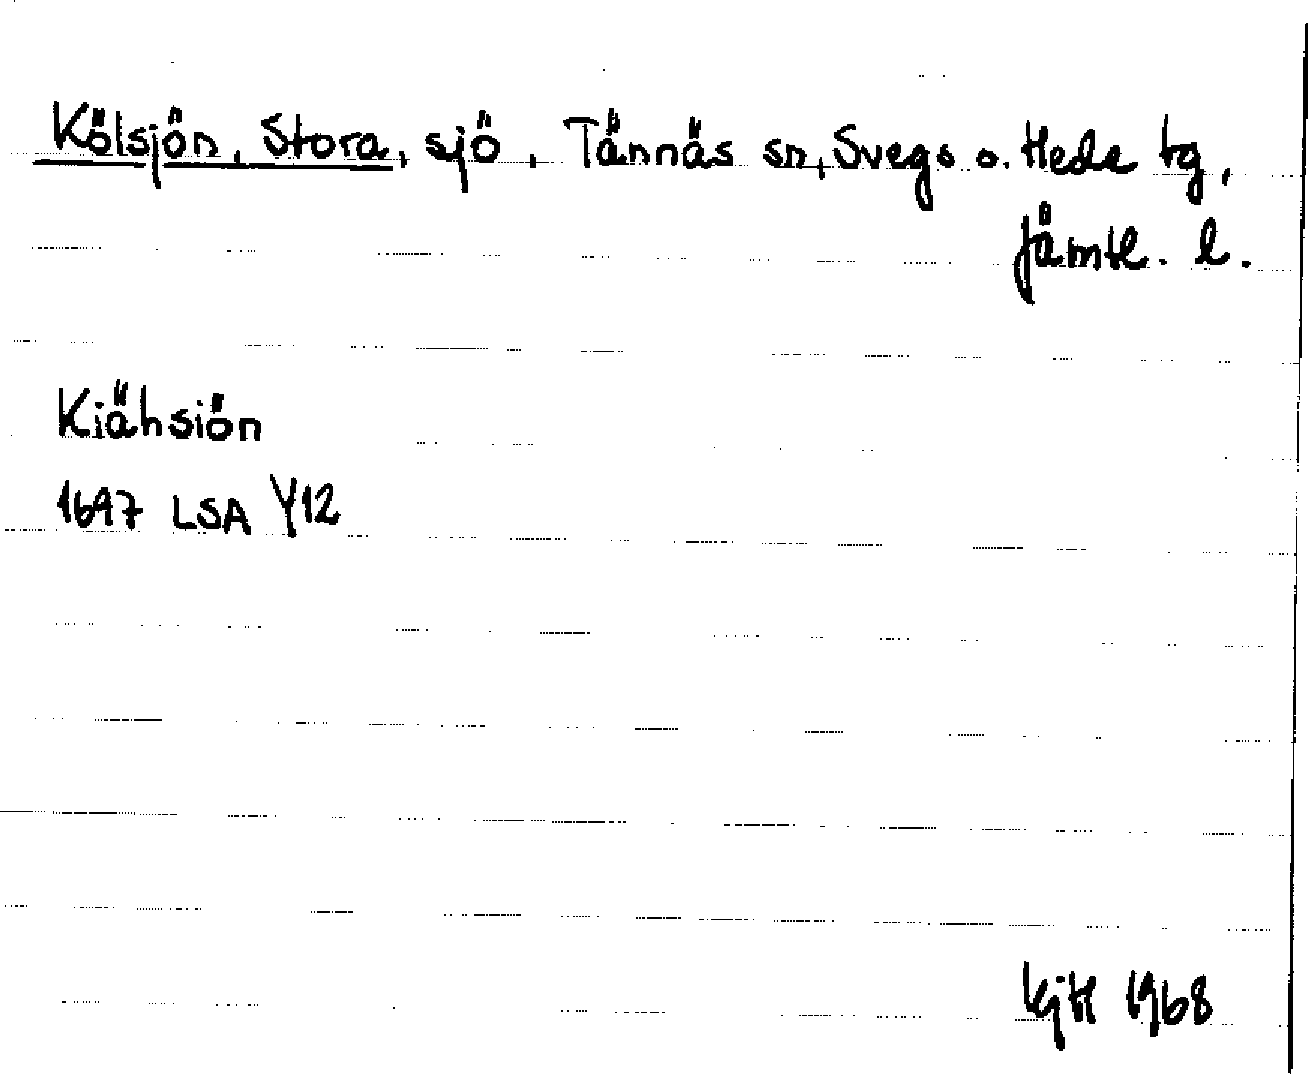 Kölsjön, Stora, sjö, Tännäs sn, Svegs o. Heds tg,
Jämtl. l.
Kiähsiön
1697 LSA Y12
KjH 1968